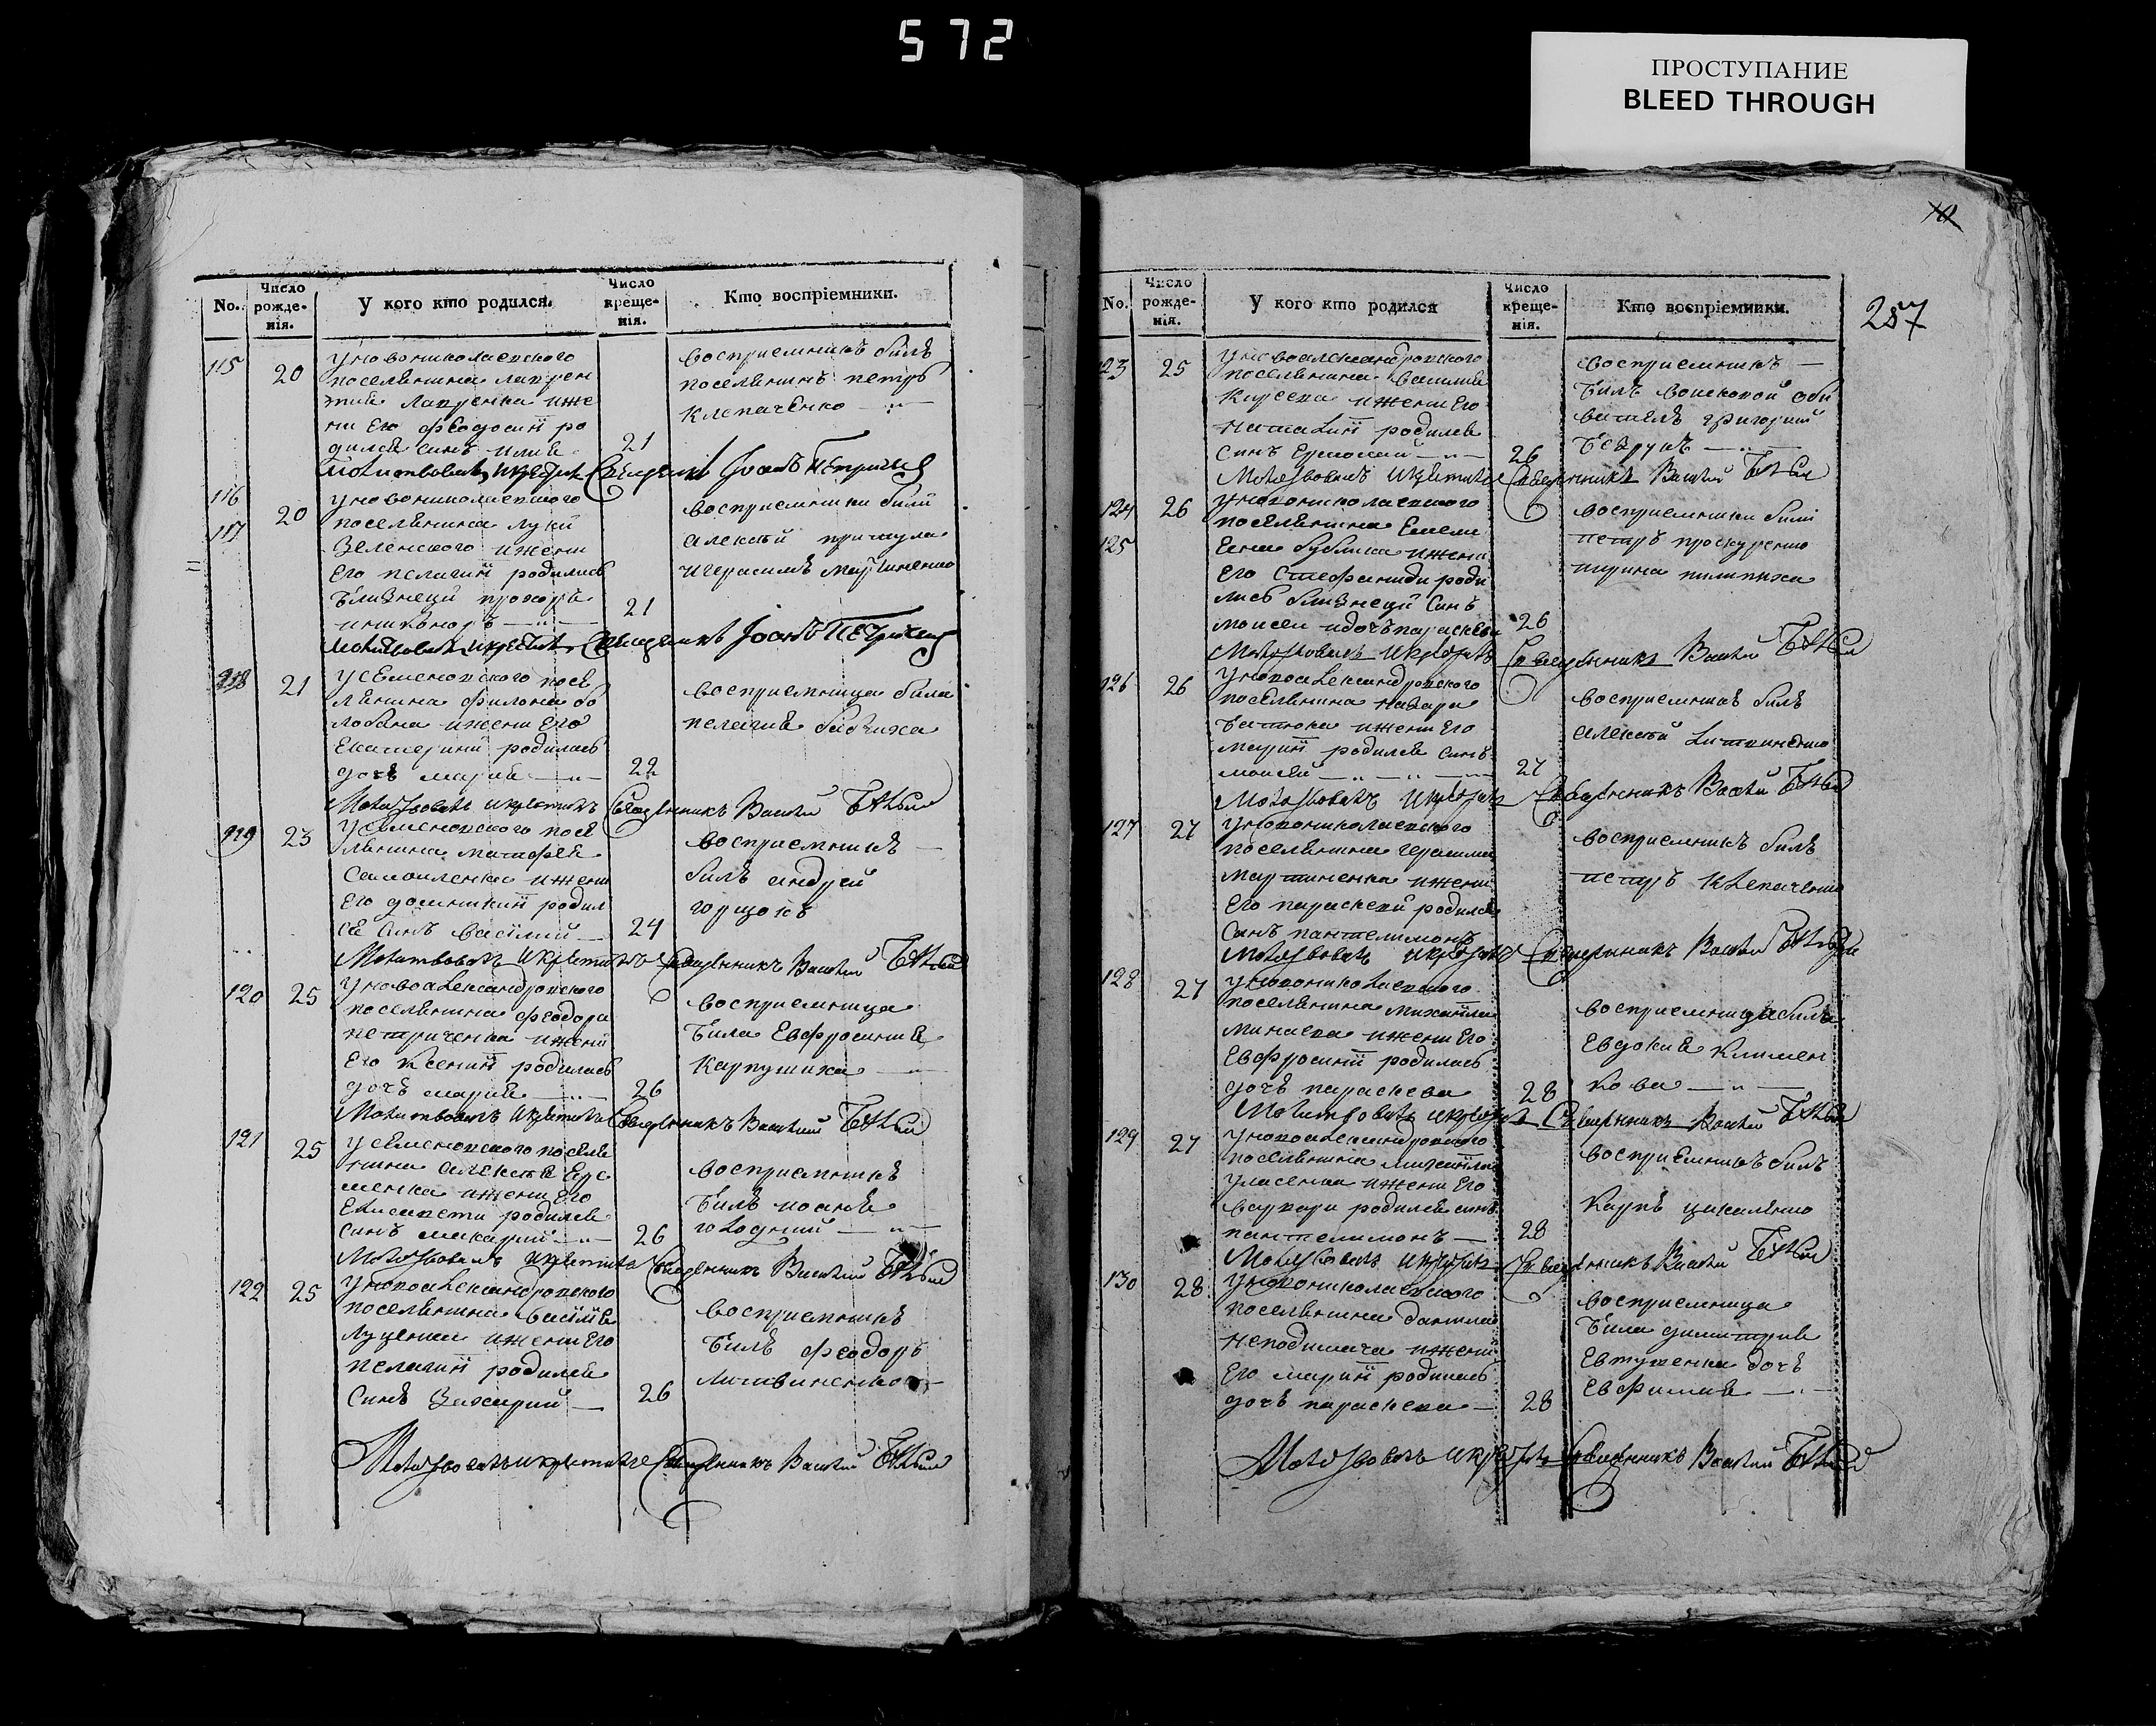 572
ПРОСТУПАНИЕ
BLEED THROUGH
287
No.
Число рожденія.
У кого кто родился.
Число крещенія.
Кто воспріемники.
115
20
уновониколаевского
поселянина лаврен
тия лавренка ижe
ни Его феодосии ро
дился синъ илия
21
восприемникъ билъ
поселянинъ петръ
клепаченко
молитвовалъ икрестилъ Священникъ Іоаннъ
116
117
20
уновониколаевского
поселянина луки
Зеленского ижени
Его пелагии родились
близнеци прохоръ
иниканоръ
21
восприемники били
алексѣй
игерасимъ мартиненко
молитвовалъ икрестилъ Священникъ Іоаннъ
118
21
усеменовского посе
лянина филона бо
лобана ижени Его
Екатерини родилась
дочь мария
22
восприемница била
пелагия бабчиха
Молитвовалъ икрестилъ Священникъ Василий
119
23
усеменовского посе
лянина матфея
Самоиленка ижени
Его домникии родил
ся Синъ василий
24
восприемникъ
билъ андрей
горщокъ
Молитвовалъ икрестилъ Священникъ Василий
120
25
уновоалександровского
поселянина феодора
петриченка ижени
Его ксении родилась
дочь мария
26
восприемница
била Евфросиния
карпушиха
Молитвовалъ икрестилъ Священникъ Василий
121
25
усеменовского поселя
нина алексѣя Ере
менка ижени Его
Елисавети родился
синъ макарий
26
восприемникъ
билъ иоаннъ
голодний
Молитвовалъ икрестилъ Священникъ Василий
122
25
уновоалександровского
поселянина василия
луценка ижени Его
пелагии родился
Синъ Захарий
26
восприемникъ
билъ феодоръ
литвиненко
Молитвовалъ икрестилъ Священникъ Василий
No.
Число рожденія.
У кого кто родился
Число крещенія.
Кто воспріемники.
123
25
уновоалександровского
поселянина василия
кирсена ижени Его
наталии родился
синъ Ермолай
26
восприемникъ
билъ воисковой оби
ватель григорий
Молитвовалъ икрестилъ Священникъ Василий
124
125
26
уновониколаевского
поселянина Емели
Бублика ижени
Его Стефаниди роди
лись близнеци Синъ
моисей идочь параскева
26
восприемники били
петръ проскуренко
ирина пилипиха
Молитвовалъ икрестилъ Священникъ Василий
126
26
уновоалександровского
поселянина назара
ижени Его
марии родился синъ
моисей
27
восприемникъ билъ
алексѣй литвиненко
Молитвовалъ икрестилъ Священникъ Василий
127
27
уновониколаевского
поселянина герасима
мартиненка ижени
Его параскеви родился
Синъ пантелимонъ
восприемникъ билъ
петръ клепаченко
Молитвовалъ икрестилъ Священникъ Василий
128
27
уновониколаевского
поселянина михаила
минаева ижени Его
Евфросинии родилась
дочь параскева
28
восприемница била
Евдокия климен
кова
Молитвовалъ икрестилъ Священникъ Василий
129
27
уновоалександровского
поселянина михаила
уласенка ижени Его
варвари родился синъ
пантелимонъ
28
восприемникъ билъ
карпъ цикаленко
Молитвовалъ икрестилъ Священникъ Василий
130
28
уновониколаевского
поселянина даниила
ижени
Его марии родилась
дочь параскева
28
восприемница
била димитрия
Евтушенка дочь
Евфимия
Молитвовалъ икрестилъ Священникъ Василий